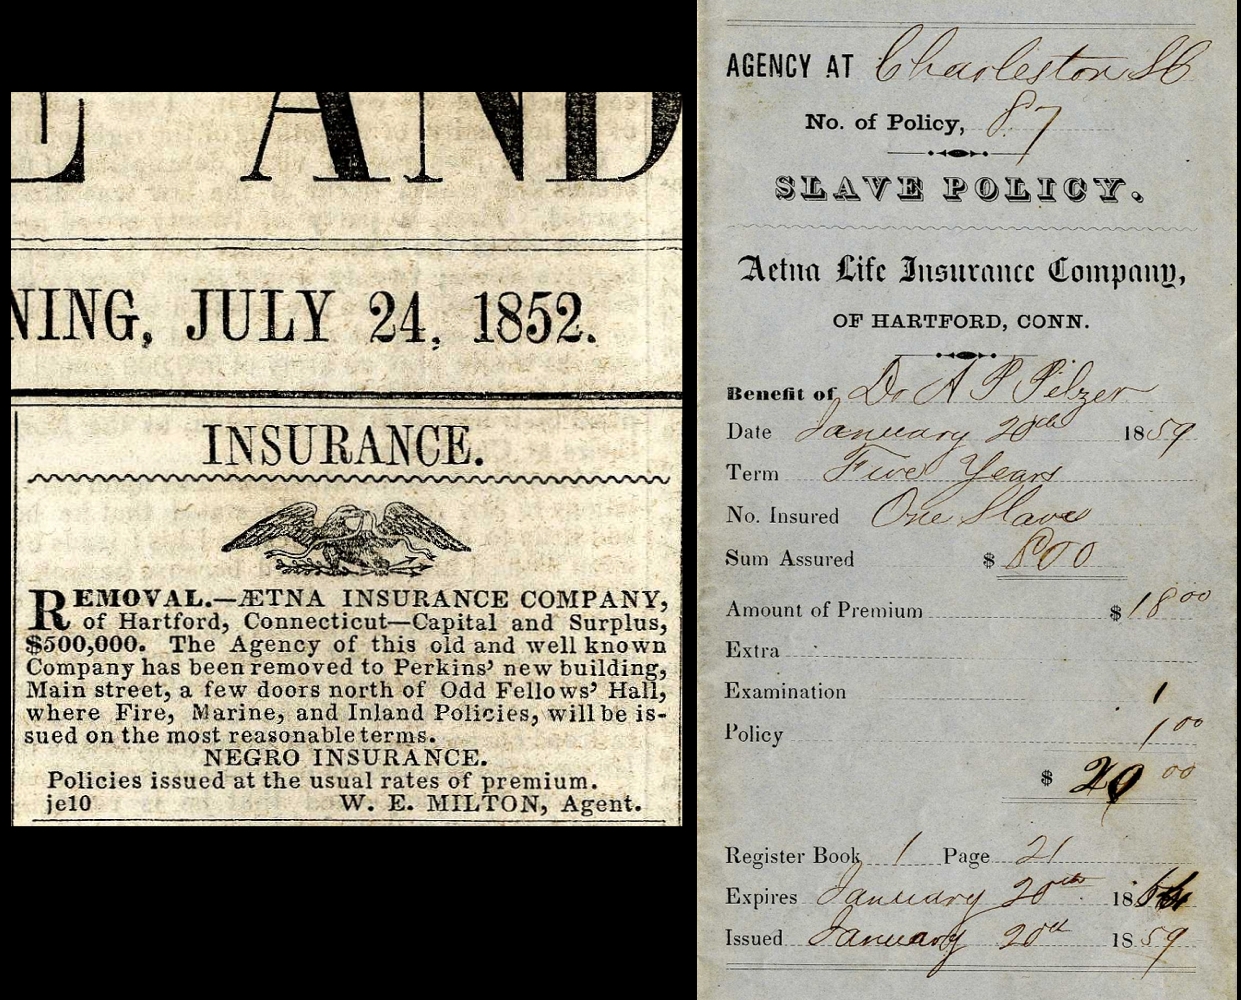 E AND
NING, JULY 24, 1852.
INSURANCE.
REMOVAL.—ÆTNA INSURANCE COMPANY,
of Hartford, Connecticut—Capital and Surplus,
$500,000. The Agency of this old and well known
Company has been removed to Perkins' new building,
Main street, a few doors north of Odd Fellows' Hall,
where Fire, Marine, and Inland Policies, will be is-
sued on the most reasonable terms.
NEGRO INSURANCE.
Policies issued at the usual rates of premium.
je10 W. E. MILTON, Agent.
AGENCY AT Charleston SC
No. of Policy, 87
SLAVE POLICY.
Aetna Life Insurance Company,
OF HARTFORD, CONN.
Benefit of Dr A P Pelzer
Date January 20th 1859
Term Five Years
No. Insured One Slave
Sum Assured $ 800
Amount of Premium $ 18 00
Extra
Examination 1
Policy 1 00
$ 20 00
Register Book 1 Page 21
Expires January 20th 1864
Issued January 20th 1859